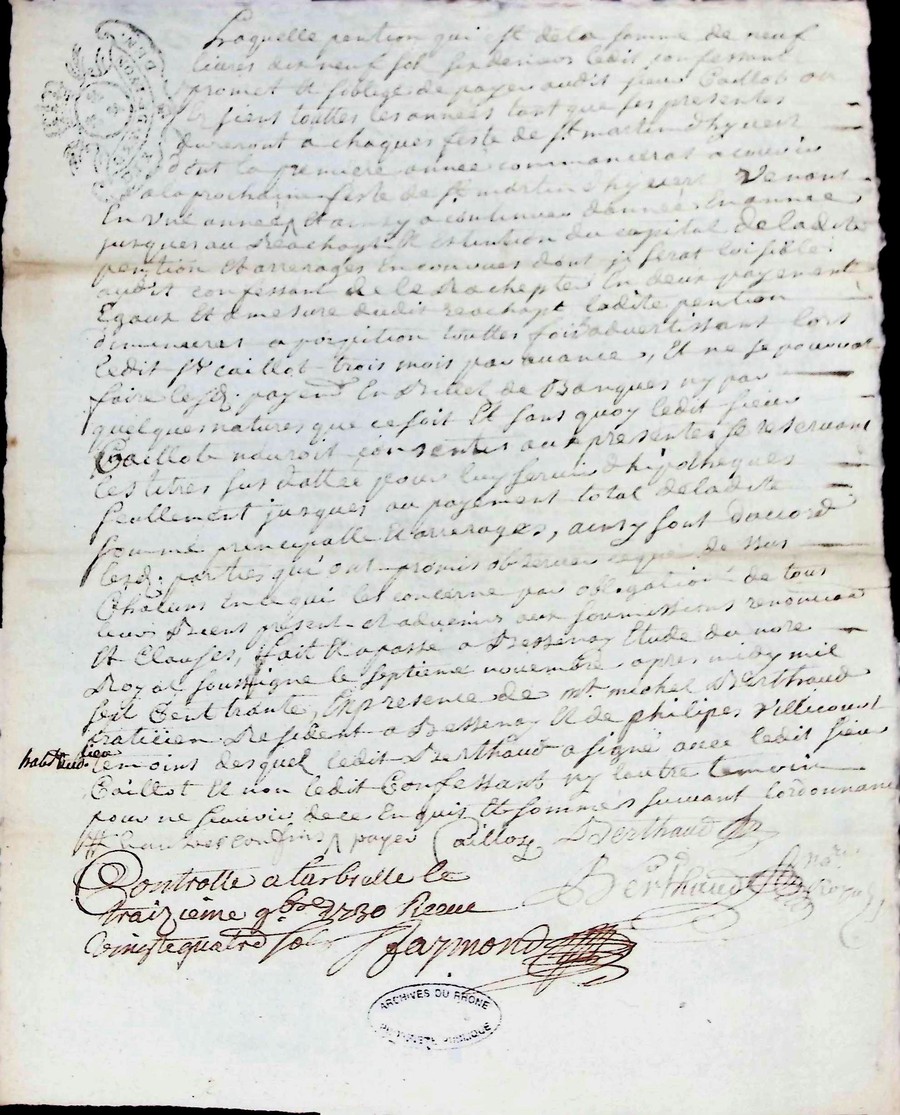 Laquelle pention qui est de la somme de neuf
livres dix neuf sol six deniers ledit confessant
promet et soblige de payer audit sieur Caillot ou
les siens touttes les années tant que les presentes
dureront a chaques feste de st martin dhyvert
dont la premiere année commancerat a courir
a la prochaine feste de st martin dhyvert venant
En une année, et ainsy a continuer dannée En année
jusques au Reachapt et Extention du capital de ladite
pention et arrerages Encourues dont il serat loisible
audit confessant de le Rachepter En deux payement
Egaux et a mesure dudit reachapt ladite pention
diminuera a portition touttes fois advertissant lors
ledit sr Caillot trois mois par avance, et ne se pourrat
faire lesd. payemt En Billet de Banques ny par
quelques natures que ce soit et sans quoy ledit sieur
Caillot nauroit consentis aux presentes se reservant
les titres sus pour luy servir dhipotheques
seullement jusques au payement total de ladite
somme principalle et arrerages, ainsy sont daccord
lesd. parties qui ont promis observer ce que dessus
Chacuns En ce qui les concerne par obligation de tous
leurs Biens présent et advenirs aux soumissions renonciaon
et Clauses, fait et passé a Bessenay Etude du nore
Royal soussigné le septieme novembre apres midy mil
sept Cent trante, En presence de mr michel Berthaud
praticien Resident a Bessenay et de philipes Villicourt
habt dud. lieu
temoins desquel ledit Berthaud a signé avec ledit sieur
Caillot et non ledit Confessant ny lautre temoin
pour ne scavoir de ce Enquis et sommés suivant lordonnance
payer Caillot Berthaud
Controllé a larbrelle le
traizieme 9bre 1730 Receu
vingtequatre sols Raymond
Berthaud nore Royal
ARCHIVES DU RHONE
PROPRIÉTÉ PUBLIQUE